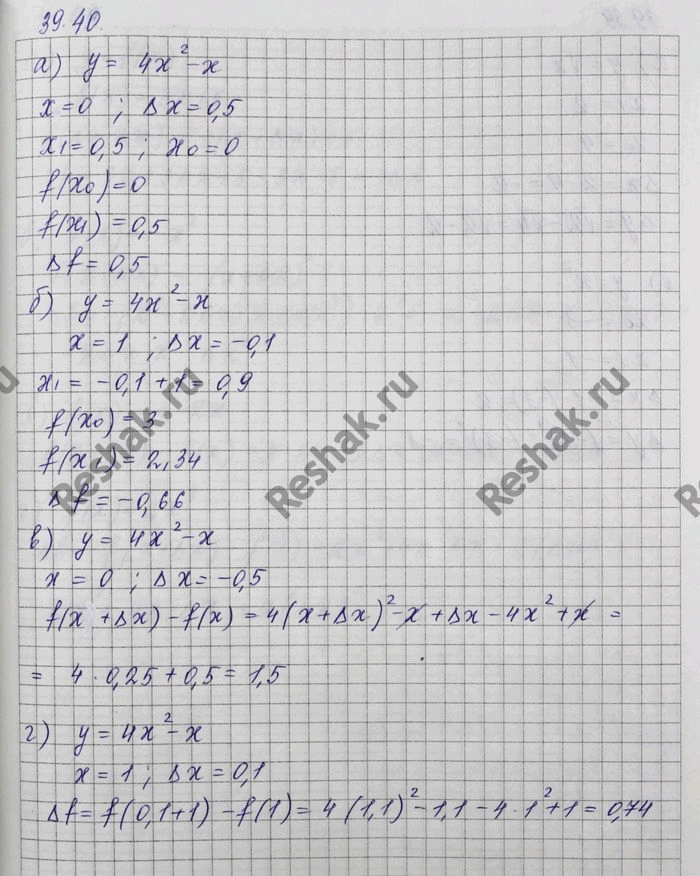 39.40.
а) y = 4x² - x
x = 0 ; Δx = 0,5
x₁ = 0,5 ; x₀ = 0
f(x₀) = 0
f(x₁) = 0,5
Δf = 0,5
б) y = 4x² - x
x = 1 ; Δx = -0,1
x₁ = -0,1 + 1 = 0,9
f(x₀) = 3
f(x₁) = 2,34
Δf = -0,66
в) y = 4x² - x
x = 0 ; Δx = -0,5
f(x + Δx) - f(x) = 4(x + Δx)² - x + Δx - 4x² + x =
= 4 · 0,25 + 0,5 = 1,5
г) y = 4x² - x
x = 1 ; Δx = 0,1
Δf = f(0,1+1) - f(1) = 4(1,1)² - 1,1 - 4 · 1² + 1 = 0,74
Reshak.ru
Reshak.ru
Reshak.ru